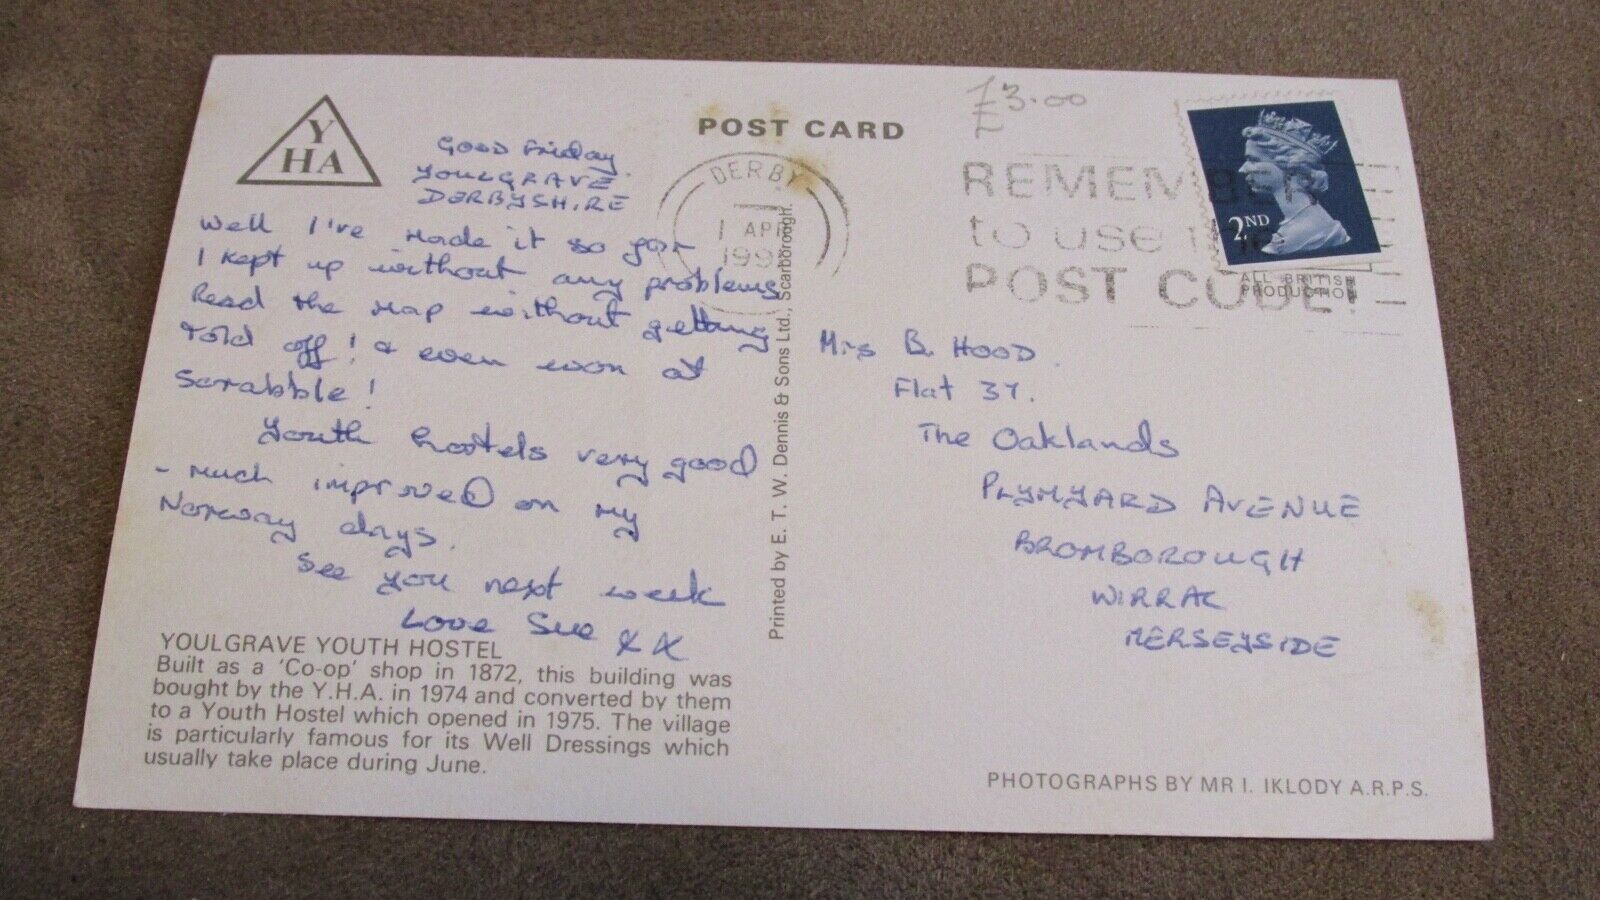 Y
HA
POST CARD
£3.00
GOOD Friday
YOULGRAVE
DERBYSHIRE
DERBY
1 APR
199
REMEMBER
to use the
POST CODE!
2ND
ALL BRITISH
PRODUCTION
Well I've made it so far
I kept up without any problems
Read the map without getting
told off! & even won at
Scrabble!
Youth hostels very good
- much improved on my
Norway days.
See you next week
Love Sue XX
Printed by E. T. W. Dennis & Sons Ltd., Scarborough.
Mrs B. HOOD
Flat 37.
The Oaklands
PLYMYARD AVENUE
BROMBOROUGH
WIRRAL
MERSEYSIDE
YOULGRAVE YOUTH HOSTEL
Built as a 'Co-op' shop in 1872, this building was
bought by the Y.H.A. in 1974 and converted by them
to a Youth Hostel which opened in 1975. The village
is particularly famous for its Well Dressings which
usually take place during June.
PHOTOGRAPHS BY MR I. IKLODY A.R.P.S.